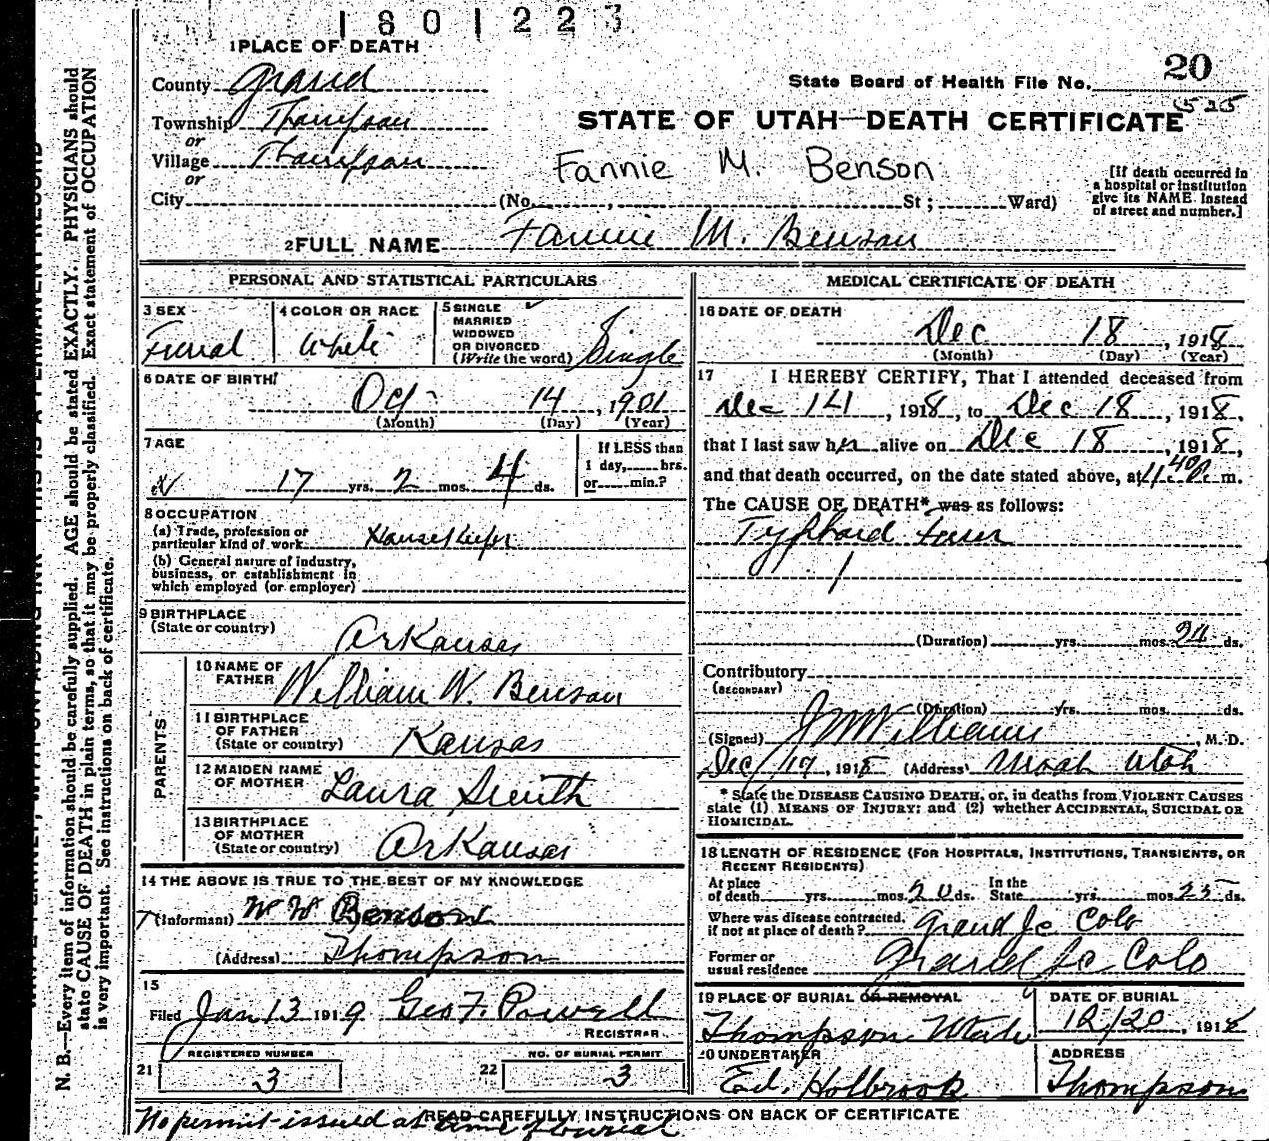 1801223
1 PLACE OF DEATH
County Grand
State Board of Health File No. 20
525
Township Thompson
or
STATE OF UTAH—DEATH CERTIFICATE
Village Thompson
or
Fannie M. Benson
City (No. , St ; Ward)
[If death occurred in
a hospital or institution
give its NAME instead
of street and number.]
2 FULL NAME Fannie M. Benson
PERSONAL AND STATISTICAL PARTICULARS
3 SEX
Femal
4 COLOR OR RACE
White
5 SINGLE
MARRIED
WIDOWED
OR DIVORCED
(Write the word) Single
6 DATE OF BIRTH
Oct 14, 1901
(Month) (Day) (Year)
7 AGE
17 yrs. 2 mos. 4 ds.
If LESS than
1 day, hrs.
or min.?
8 OCCUPATION
(a) Trade, profession or
particular kind of work Housekeeper
(b) General nature of industry,
business, or establishment in
which employed (or employer)
9 BIRTHPLACE
(State or country)
Arkansas
PARENTS
10 NAME OF
FATHER William W. Benson
11 BIRTHPLACE
OF FATHER
(State or country) Kansas
12 MAIDEN NAME
OF MOTHER Laura Smith
13 BIRTHPLACE
OF MOTHER
(State or country) Arkansas
14 THE ABOVE IS TRUE TO THE BEST OF MY KNOWLEDGE
(Informant) W W Benson
(Address) Thompson
15
Filed Jan 13 1919 Geo F. Powell
REGISTRAR
REGISTERED NUMBER
21 3
NO. OF BURIAL PERMIT
22 3
MEDICAL CERTIFICATE OF DEATH
16 DATE OF DEATH
Dec 18, 1918
(Month) (Day) (Year)
17 I HEREBY CERTIFY, That I attended deceased from
Dec 14, 1918, to Dec 18, 1918,
that I last saw her alive on Dec 18, 1918,
and that death occurred, on the date stated above, at 11.40 P. m.
The CAUSE OF DEATH* was as follows:
Typhoid Fever
(Duration) yrs. mos. 24 ds.
Contributory
(SECONDARY)
(Duration) yrs. mos. ds.
(Signed) J M Williams, M. D.
Dec 19, 1918 (Address) Moab Utah
* State the DISEASE CAUSING DEATH, or, in deaths from VIOLENT CAUSES
state (1) MEANS OF INJURY; and (2) whether ACCIDENTAL, SUICIDAL OR
HOMICIDAL.
18 LENGTH OF RESIDENCE (FOR HOSPITALS, INSTITUTIONS, TRANSIENTS, OR
RECENT RESIDENTS)
At place
of death yrs. mos. 20 ds. In the
State yrs. mos. 25 ds.
Where was disease contracted,
if not at place of death? Grand Jc Colo
Former or
usual residence Grand Jc Colo
19 PLACE OF BURIAL OR REMOVAL
Thompson Utah
DATE OF BURIAL
12/20, 1918
20 UNDERTAKER
Ed. Holbrook
ADDRESS
Thompson
READ CAREFULLY INSTRUCTIONS ON BACK OF CERTIFICATE
No permit issued at time of burial
N. B.—Every item of information should be carefully supplied. AGE should be stated EXACTLY. PHYSICIANS should
state CAUSE OF DEATH in plain terms, so that it may be properly classified. Exact statement of OCCUPATION
is very important. See instructions on back of certificate.